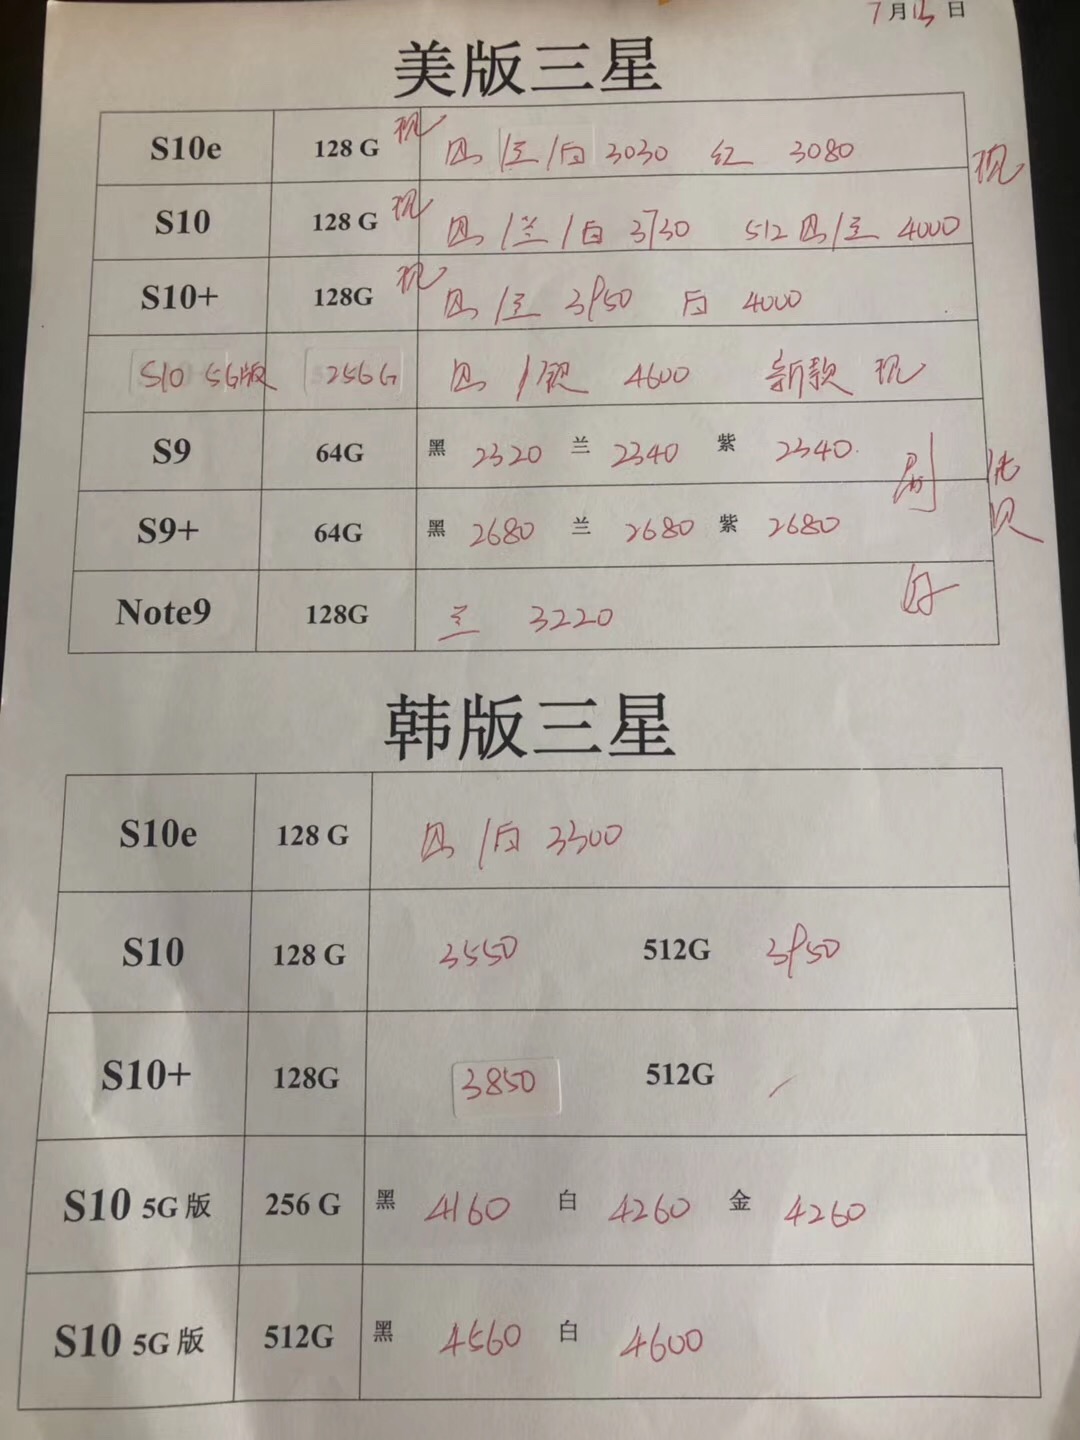 7月13日
美版三星
S10e 128 G 现 黑/兰/白 3030 红 3080 现
S10 128 G 现 黑/兰/白 3730 512 黑/兰 4000
S10+ 128G 现 黑/兰 3950 白 4000
S10 5G版 256G 黑/银 4600 新款 现
S9 64G 黑 2320 兰 2340 紫 2340
S9+ 64G 黑 2680 兰 2680 紫 2680
刷 好
Note9 128G 兰 3220
韩版三星
S10e 128 G 黑/白 3300
S10 128 G 3550 512G 3950
S10+ 128G 3850 512G /
S10 5G版 256 G 黑 4160 白 4260 金 4260
S10 5G版 512G 黑 4560 白 4600